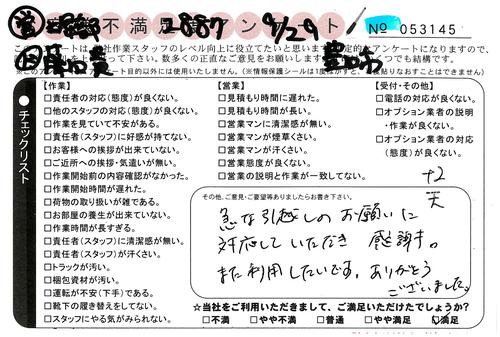 不満足 アンケート
2887 9/29
No 053145
このアンケートは、弊社作業スタッフのレベル向上に役立てたいと思います。
チェックリスト
【作業】
□責任者の対応(態度)が良くない。
□他のスタッフの対応(態度)が良くない。
□作業を見ていて不安がある。
□責任者(スタッフ)に好感が持てない。
□お客様への挨拶が出来ていない。
□ご近所への挨拶・気遣いが無い。
□作業開始前の内容確認がなかった。
□作業開始時間が遅れた。
□荷物の取り扱いが雑である。
□お部屋の養生が出来ていない。
□作業時間が長すぎる。
□責任者(スタッフ)に清潔感が無い。
□責任者(スタッフ)が汗くさい。
□トラックが汚い。
□梱包資材が汚い。
□運転が不安(下手)である。
□靴下の履き替えをしてない。
□スタッフにやる気がみられない。
【営業】
□見積もり時間に遅れた。
□見積もり時間が長い。
□営業マンの清潔感が無い。
□営業マンが煙草くさい。
□営業マンが汗くさい。
□営業態度が良くない。
□営業の説明と作業が一致してない。
【受付・その他】
□電話の対応が良くない。
□オプション業者の説明
・作業が良くない。
□オプション業者の対応
(態度)が良くない。
その他、ご意見・ご要望等ありましたらお書き下さい。
急な引越しのお願いに
対応していただき 感謝す。
また利用したいです。ありがとう
ございました。
☆当社をご利用いただきまして、ご満足いただけてしょうか?
□不満 □やや不満 □普通 □やや満足 □満足